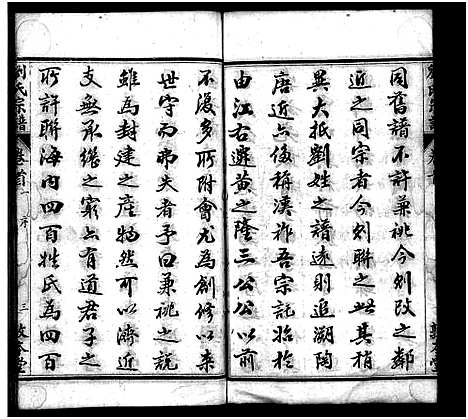 同舊譜不許兼祧今则改之鄰
近之同宗者今则聯之此其稍
異大抵劉姓之譜遠則追溯陶
唐近亦侈稱漢祚吾宗託始於
由江右遷黄之隆三公公以前
不復多所附會尤為創修以来
世守而弗失者予曰兼祧之説
雖為封建之產物然可以濟近
支無承繼之窮亦有道君子之
所許聯海内四百姓氏為四百
劉氏宗譜
卷首
序
三